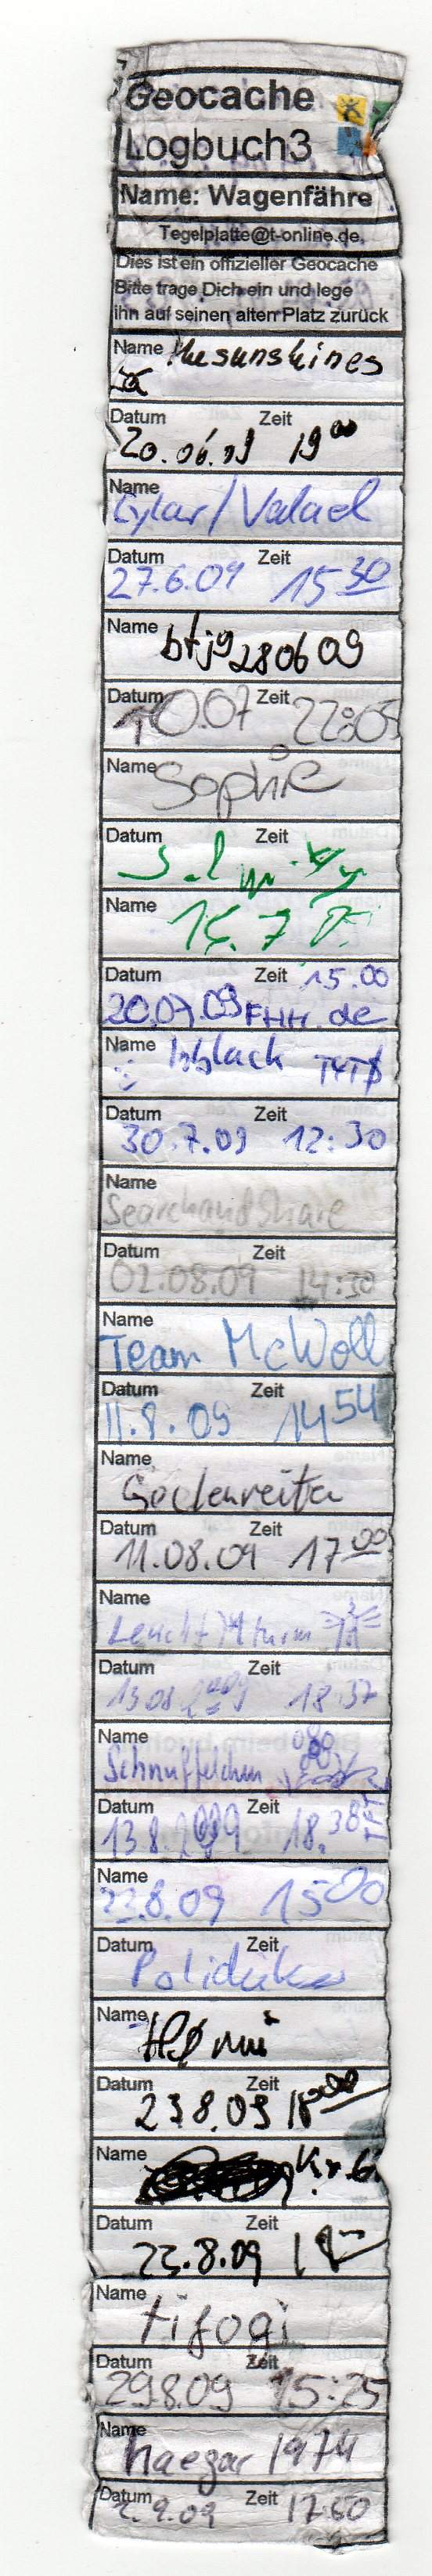 Geocache
Logbuch3
Name: Wagenfähre
Tegelplatte@t-online.de
Dies ist ein offizieller Geocache
Bitte trage Dich ein und lege
ihn auf seinen alten Platz zurück
Name thesunshines
Datum Zeit
20.06.09 19 00
Name
Cylar/Valael
Datum Zeit
27.6.09 15 30
Name btjg280609
Datum 10.07 Zeit 22:05
Name Sophie
Datum Zeit
Name
15.7
Datum Zeit 15.00
20.07.09 FHH.de
Name bblack TFTC
Datum Zeit
30.7.09 12:30
Name
SearchandShare
Datum Zeit
02.08.09 14:30
Name
Team McWoll
Datum Zeit
11.8.09 14 54
Name
Datum Zeit
11.08.09 17 00
Name
Leucht turm
Datum Zeit
13 08 2009 18 37
Name
Schnuffelchen
Datum Zeit
13.8.2009 18.38
Name
22.8.09 15 00
Datum Zeit
Name
Datum Zeit
23.8.09
Name
Datum Zeit
23.8.09
Name
tifogi
Datum Zeit
29.8.09 15:25
Name
haegar 1974
Datum Zeit
2.9.09 17:50